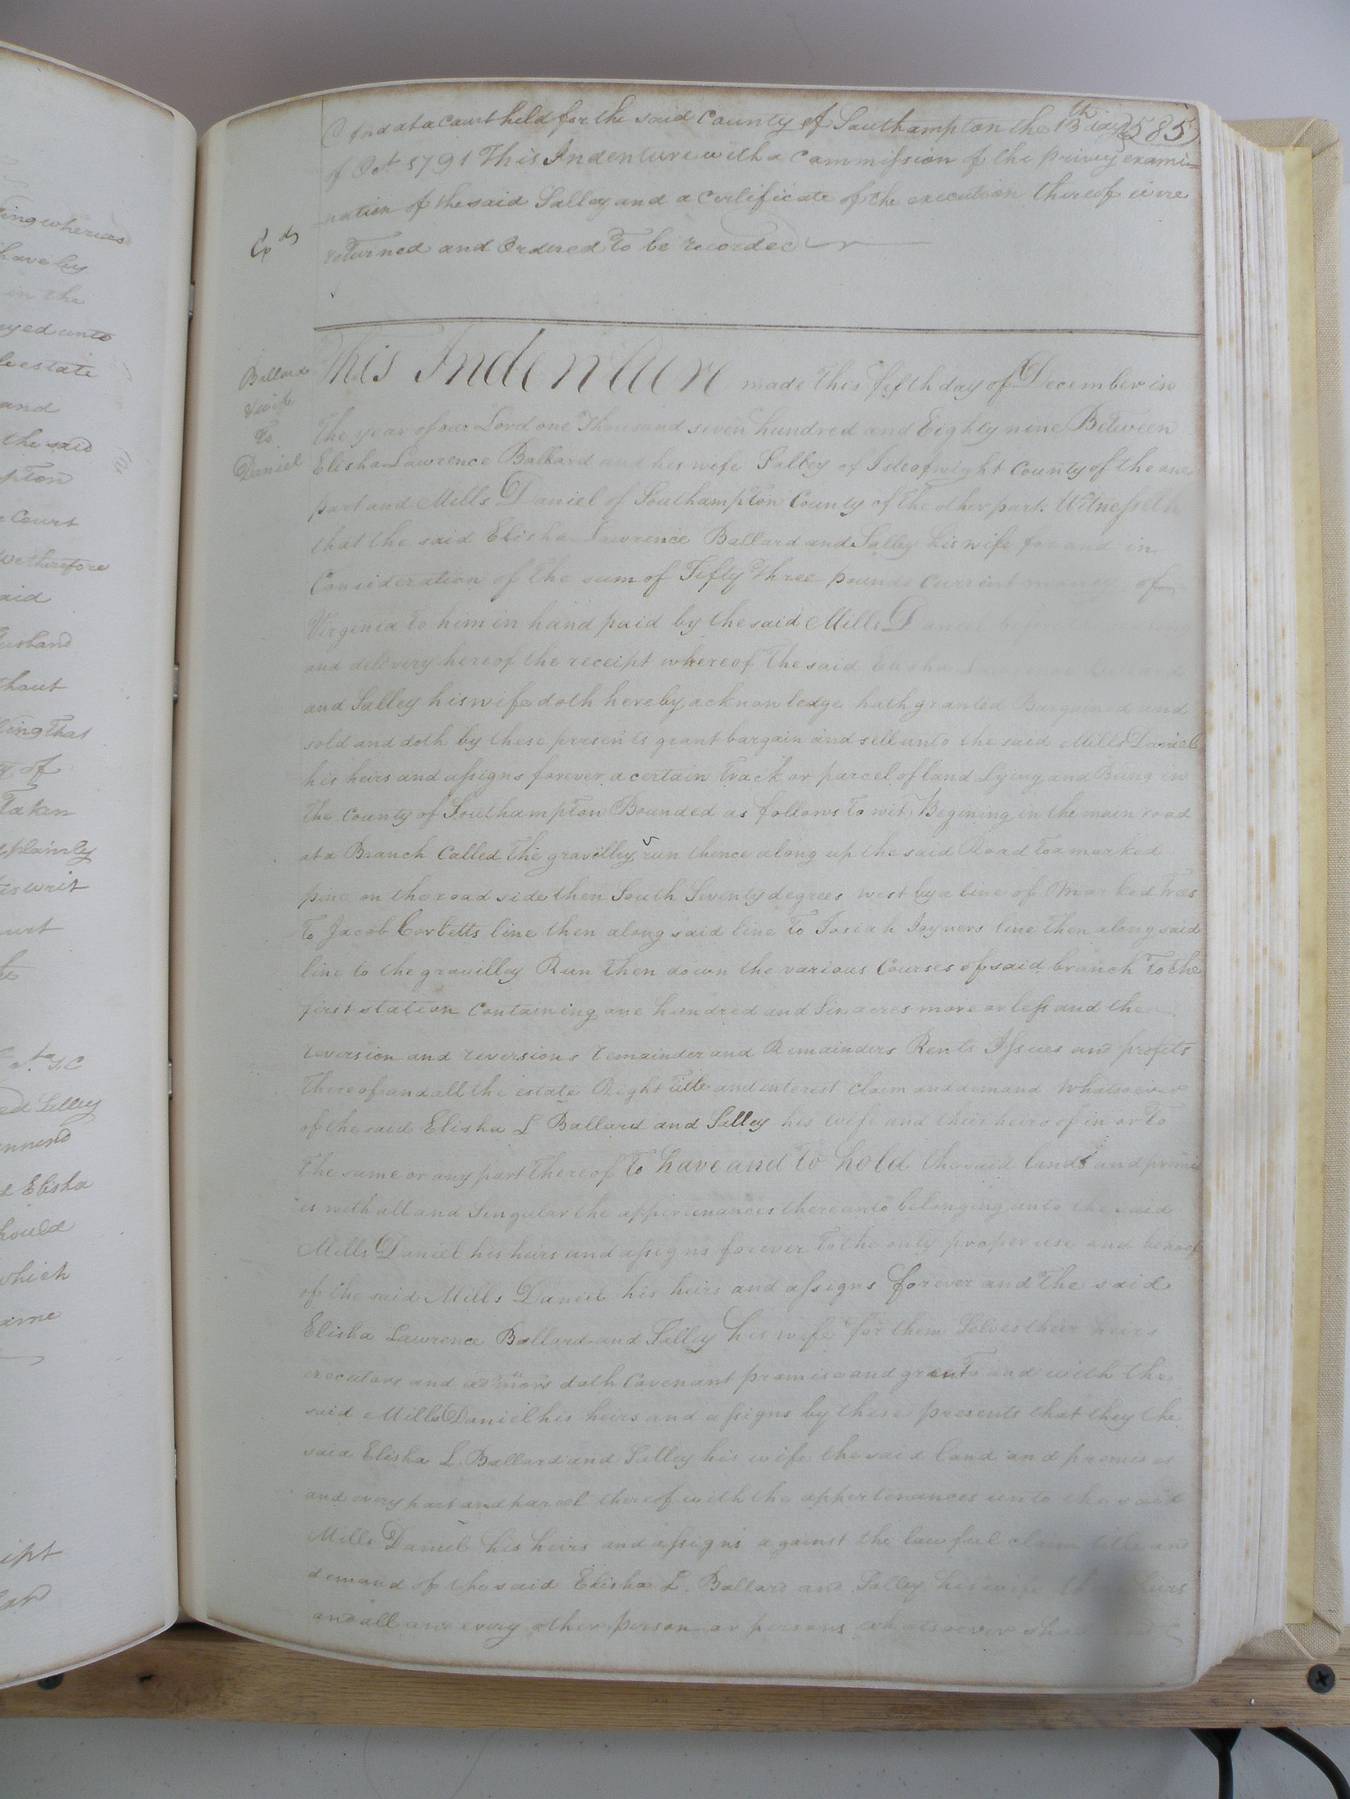 And at a Court held for the said County of Southampton the 13th day 585
of Oct 1791 This Indenture with a Commission of the privey exami-
nation of the said Salley and a Certificate of the execution thereof were
returned and Ordered to be recorded
Exd
This Indenture made this fifth day of December in
Ballard
& wife
To
Daniel
the year of our Lord one Thousand seven hundred and Eighty nine Between
Elisha Lawrence Ballard and his wife Salley of Isle of wight County of the one
part and Mills Daniel of Southampton County of the other part. Witnesseth
that the said Elisha Lawrence Ballard and Salley his wife for and in
Consideration of the sum of Fifty three pounds current money of
Virginia to him in hand paid by the said Mills Daniel
and delivery hereof the receipt whereof the said Elisha Lawrence Ballard
and Salley his wife doth hereby acknowledge hath granted Bargained and
sold and doth by these presents grant bargain and sell unto the said Mills Daniel
his heirs and assigns forever a certain track or parcel of land Lying and Being in
the County of Southampton Bounded as follows to wit, Begining in the main road
at a Branch Called the gravilley run thence along up the said Road to a marked
pine on the road side then South Seventy degrees west by a line of Marked trees
to Jacob Corbetts line then along said line to Josiah Joyners line then along said
line to the gravilley Run then down the various Courses of said branch to the
first station Containing one hundred and acres more or less and the
reversion and reversions remainder and Remainders Rents Issues and profits
thereof and all the estate Right title and interest claim and demand whatsoever
of the said Elisha L Ballard and Salley his wife and their heirs of in or to
the same or any part thereof To have and to hold the said lands and premis
es with all and Singular the appertenances thereunto belonging unto the said
Mills Daniel his heirs and assigns forever to the only proper use and behoof
of the said Mills Daniel his heirs and assigns forever and the said
Elisha Lawrence Ballard and Salley his wife for them Selves their heirs
executors and admors doth Covenant promise and grant to and with the
said Mills Daniel his heirs and assigns by these presents that they the
said Elisha L Ballard and Salley his wife the said land and premises
and every part and parcel thereof with the appertenances unto the said
Mills Daniel his heirs and assigns against the lawful claim title and
demand of the said Elisha L. Ballard and Salley his wife their heirs
and all and every other person or persons whatsoever shall and